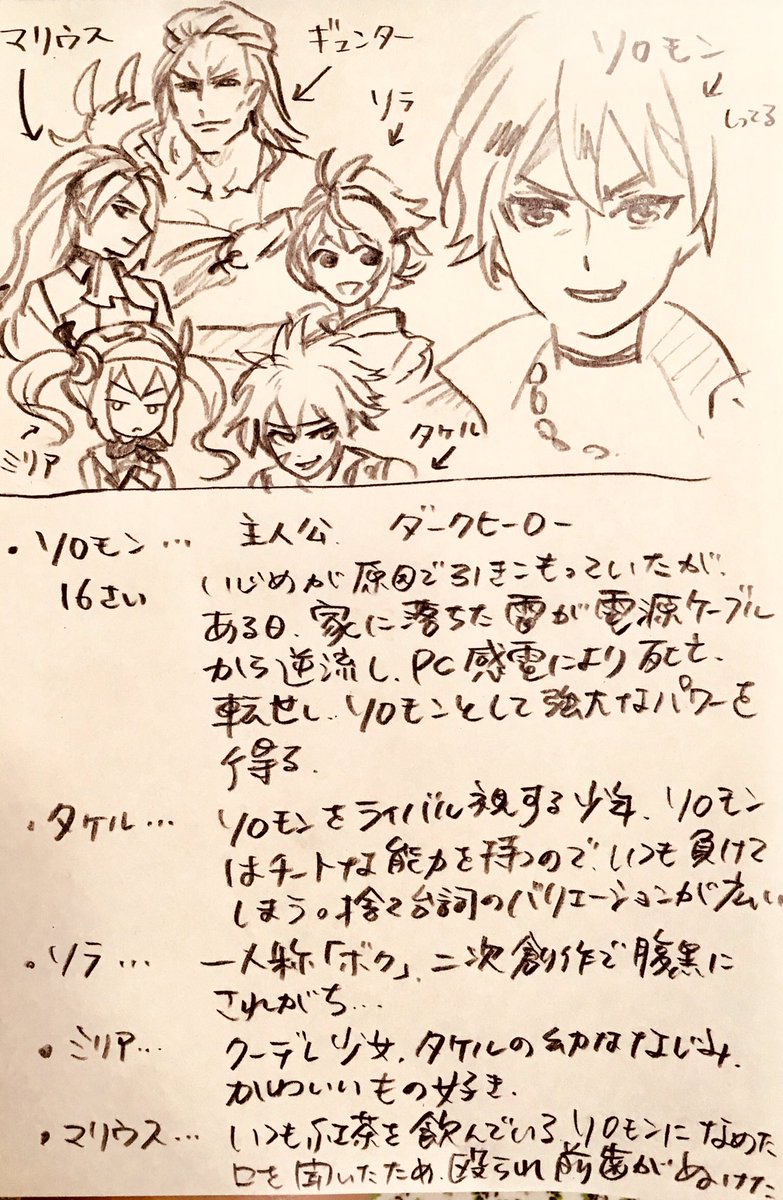 マリウス
ギュンター
ソラ
ソロモン
しってる
ミリア
タケル
・ソロモン… 主人公. ダークヒーロー
16さい いじめが原因で引きこもっていたが、
ある日、家に落ちた雷が電源ケーブル
から逆流し、PC感電により死亡、
転せし、ソロモンとして強大なパワーを
得る.
・タケル… ソロモンをライバル視する少年、ソロモン
はチートな能力を持つので、いつも負けて
しまう。捨て台詞のバリエーションが広い
・ソラ… 一人称「ボク」、二次創作で腹黒に
されがち…
・ミリア… クーデレ少女、タケルの幼ななじみ、
かわいいもの好き.
・マリウス… いつも紅茶を飲んでいる、ソロモンになめた
口を聞いたため、殴られ前歯がぬけた